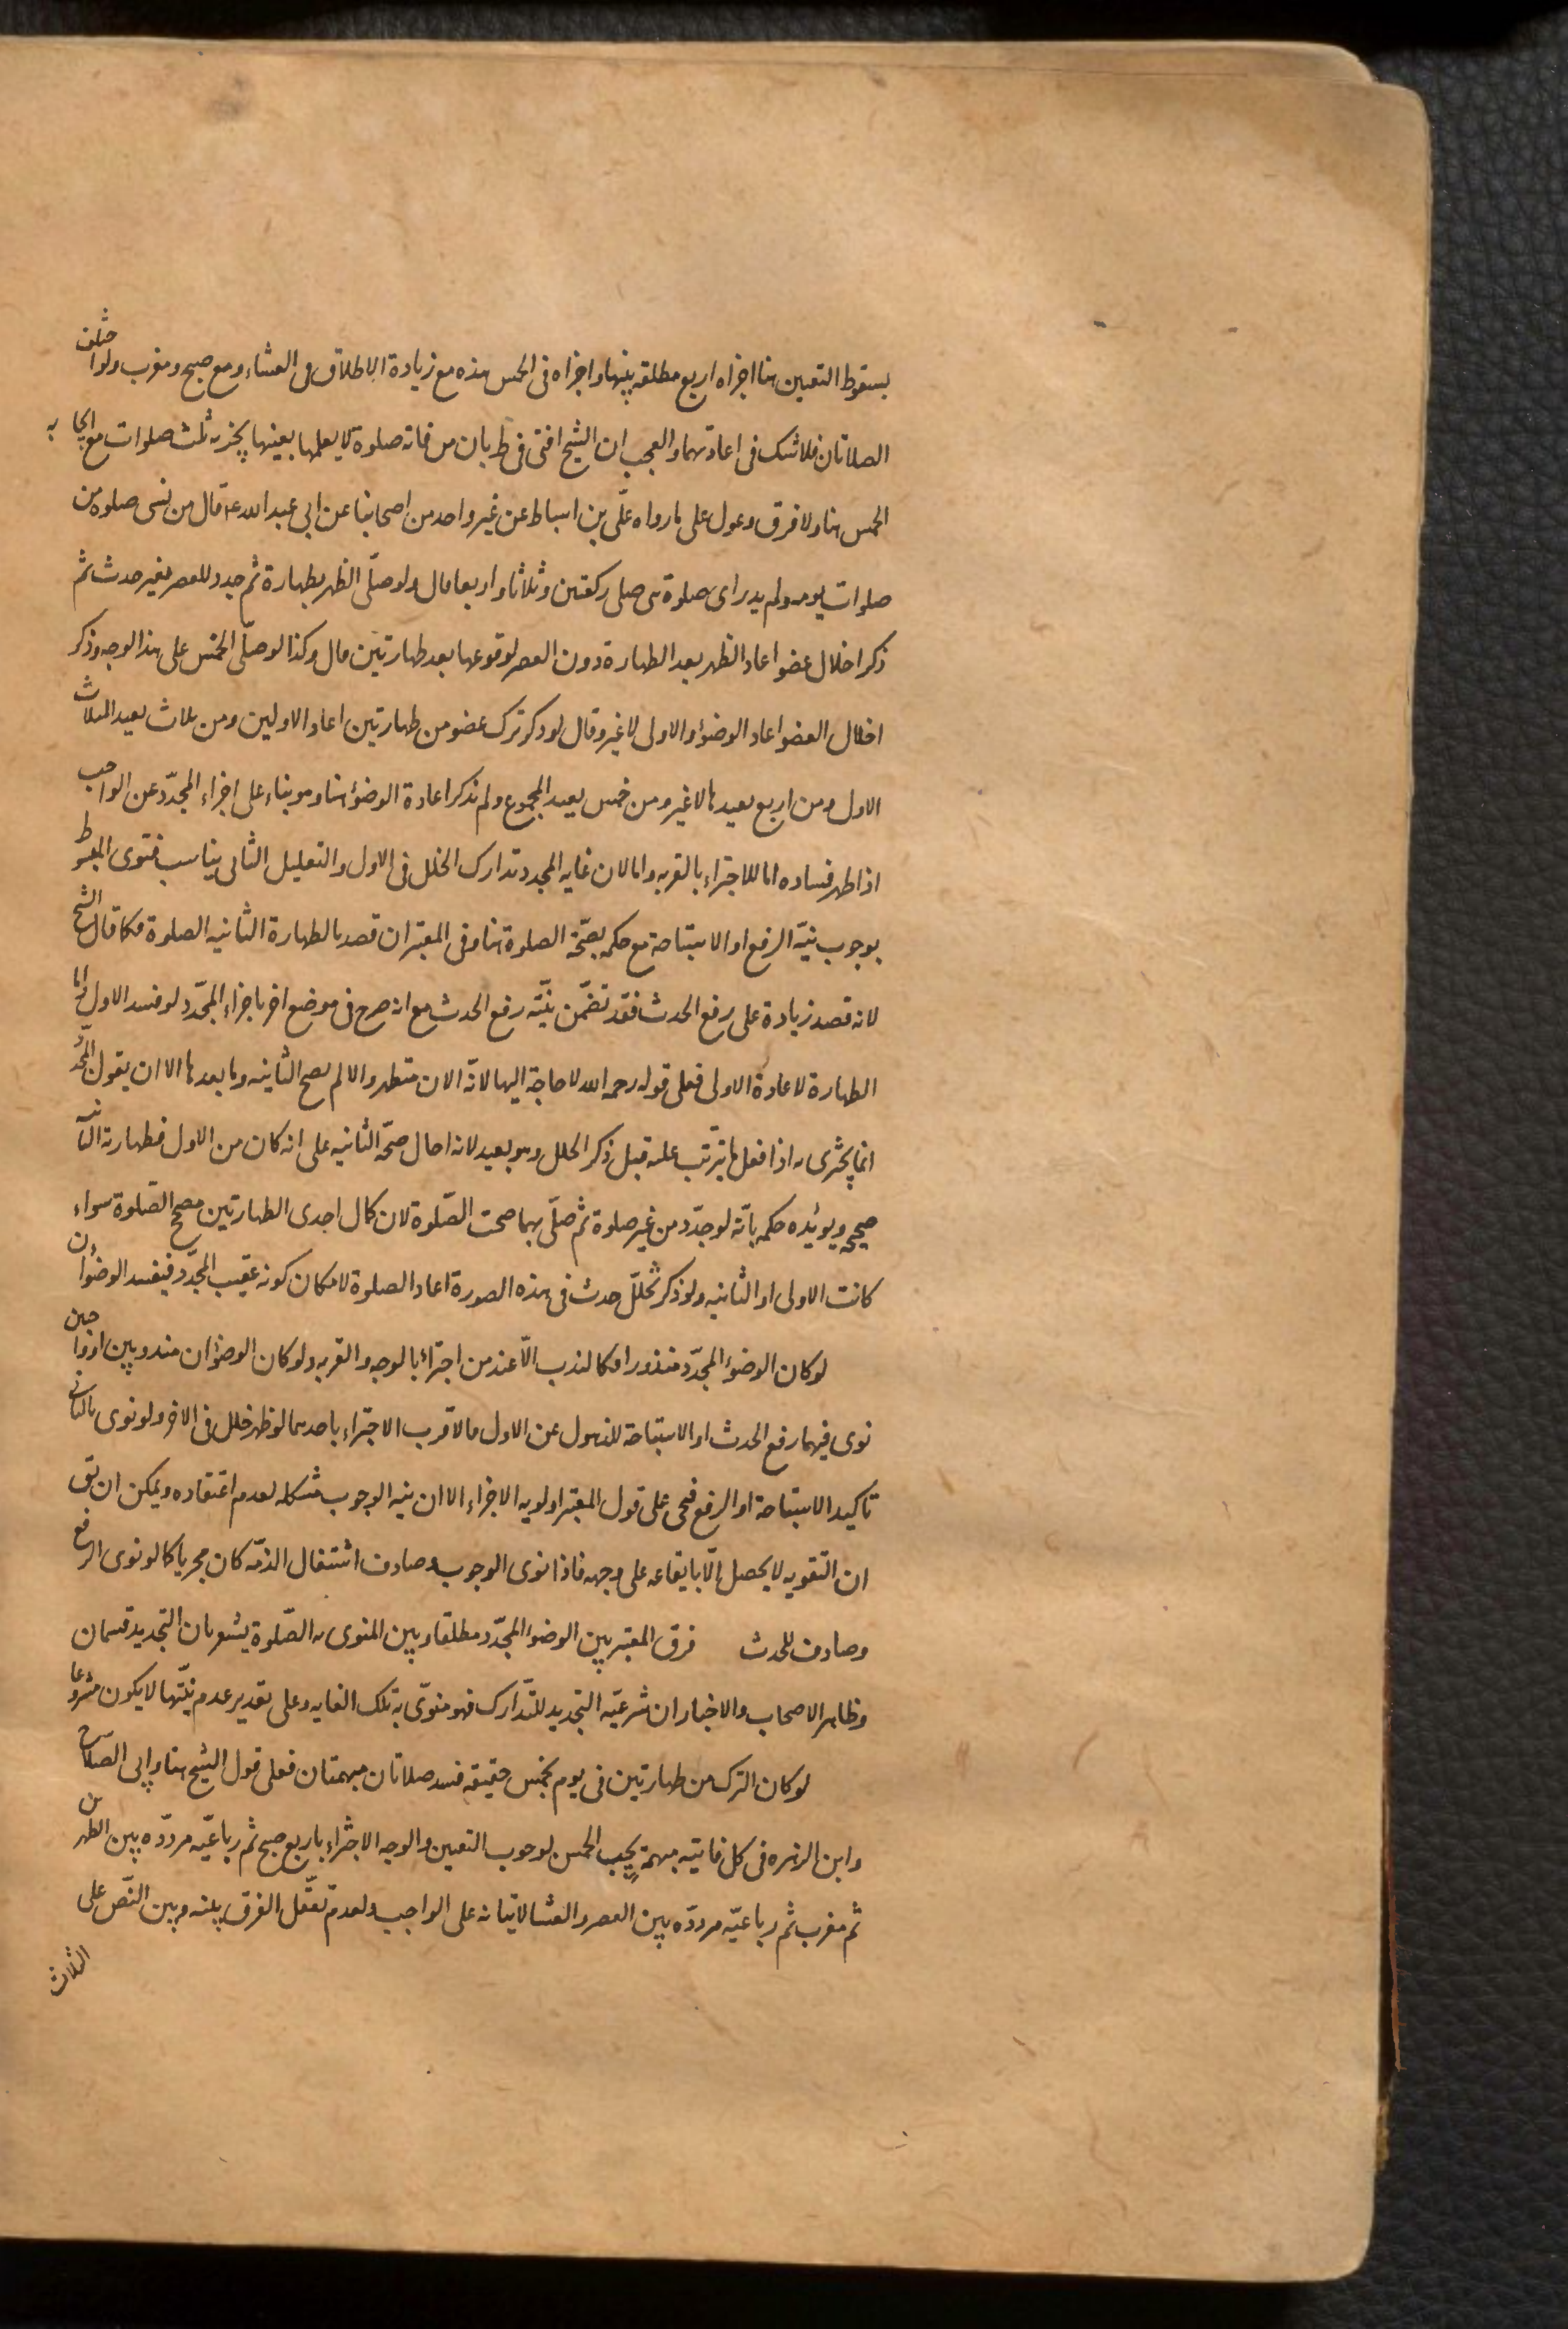 بسقوط التعيين هنا اجزاه اربع مطلقه بينها واجزاه فى الخمس هذه مع زيادة الاطلاق فى العشاء ومع صبح ومغرب ولو اختلف
الصلاتان فلا شك فى اعادتهما والعجب ان الشيخ افتى فى ط بان من فاته صلوة لا يعلمها بعينها يجزيه ثلث صلوات مع ايجابه
الخمس هنا ولا فرق وعول على ما رواه علّى بن اسباط عن غير واحد من اصحابنا عن ابى عبد الله ع قال من نسى صلوة من
صلوات يومه ولم يدر اى صلوة هى صلى ركعتين وثلاثا واربعا قال ولو صلّى الظهر بطهارة ثم جدد للعصر بغير حدث ثم
ذكر اخلال عضو اعاد الظهر بعد الطهارة دون العصر لوقوعها بعد طهارتين قال وكذا لو صلّى الخمس على هذا الوجه وذكر
اخلال العضو اعاد الوضوء والاولى لا غير وقال لو ذكر ترك عضو من طهارتين اعاد الاولين ومن ثلاث يعيد الثلاث
الاول ومن اربع يعيدها لا غير ومن خمس يعيد المجموع ولم نذكر اعادة الوضوء هنا وهو بناء على اجزاء المجدّد عن الواجب
اذا ظهر فساده اما للاجتزاء بالقربه واما لان غايه المجدد تدارك الخلل فى الاول والتعليل الثانى يناسب فتوى المبسوط
بوجوب نيّة الرفع او الاستباحة مع حكمه بصحّة الصلوة هنا وفى المعتبر ان قصد بالطهارة الثانيه الصلوة فكما قال الشيخ
لانه قصد زيادة على رفع الحدث فقد تضمّن نيّته رفع الحدث مع انه صرح فى موضع اخر باجزاء المجدّد لو فسد الاول واما
الطهارة لاعادة الاولى فعلى قوله رحمه الله لا حاجة اليها لانّه الان متطهر والا لم يصح الثانيه وما بعدها الا ان يقول المجدّد
انما يجزى اذا فعل ما يترتب عليه قبل ذكر الخلل وهو بعيد لانه احال صحّة الثانيه على انه كان من الاول فطهارته الثانيه
صحيحه ويوئده حكمه بانّه لو جدّد من غير صلوة ثم صلّى بهما صحت الصّلوة لان كمال احدى الطهارتين مصحح الصّلوة سواء
كانت الاولى او الثانيه ولو ذكر تخلّل حدث فى هذه الصورة اعاد الصلوة لامكان كونه عقيب المجدّد فيفسد الوضوان
لو كان الوضوء المجدّد منذورا فكالندب الّا عند من اجتزاء بالوجه والقربه ولو كان الوضوان مندوبين او واجبين
نوى فيهما رفع الحدث او الاستباحة للذهول عن الاول فالاقرب الاجتزاء باحدهما لو ظهر خلل فى الاخر ولو نوى بالثانى
تاكيد الاستباحة او الرفع فجى على قول المعتبر اولويه الاجزاء الا ان نيه الوجوب مشكله لعدم اعتقاده ويمكن ان يق
ان التقويه لا يحصل الّا بايقاعه على وجهه فاذا نوى الوجوب وصادف اشتغال الذمّه كان مجزيا كما لو نوى الرفع
وصادف للحدث فرق المعتبر بين الوضوء المجدّد مطلقا وبين المنوى به الصّلوة يشعر بان التجديد قسمان
وظاهر الاصحاب والاخبار ان شرعيّه التجديد للتّدارك فهو منوىّ به تلك الغايه وعلى تقدير عدم نيّتها لا يكون مشروعا
لو كان الترك من طهارتين فى يوم بخمس حقيقه فسد صلاتان مبهمتان فعلى قول الشيخ هنا وابى الصّلاح
وابن الزهره فى كل فايته مبهمة يجب الخمس لوجوب التعيين والوجه الاجتزاء باربع صبح ثم رباعيّه مردّده بين الظهرين
ثم مغرب ثم رباعيّه مردّده بين العصر والعشا لاتيانه على الواجب ولعدم تعقّل الفرق بينه وبين النّص على
الثلاث